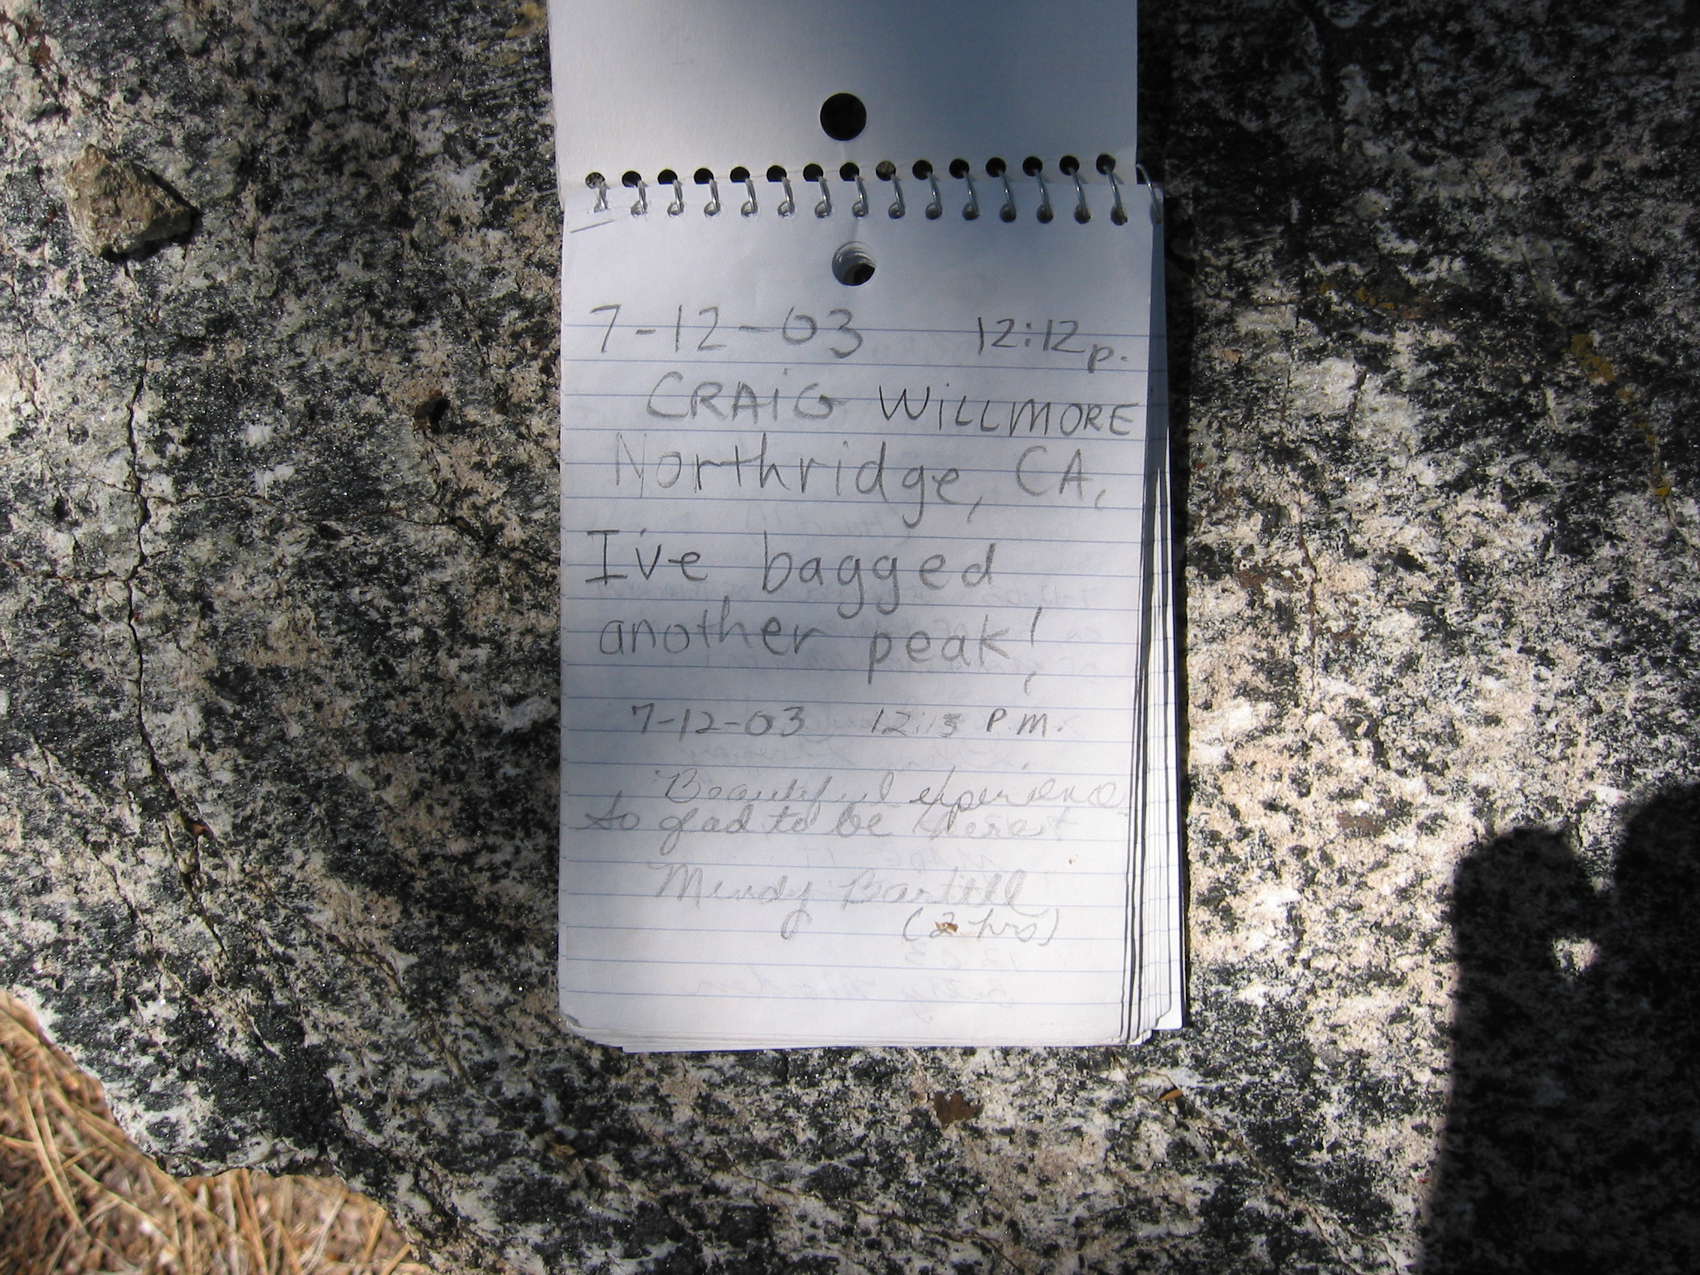 7-12-03 12:12p.
CRAIG WILLMORE
Northridge, CA,
I've bagged
another peak!
7-12-03 12:13 P.M.
Beautiful experience
So glad to be here
Mindy Bartell
(2 hrs)